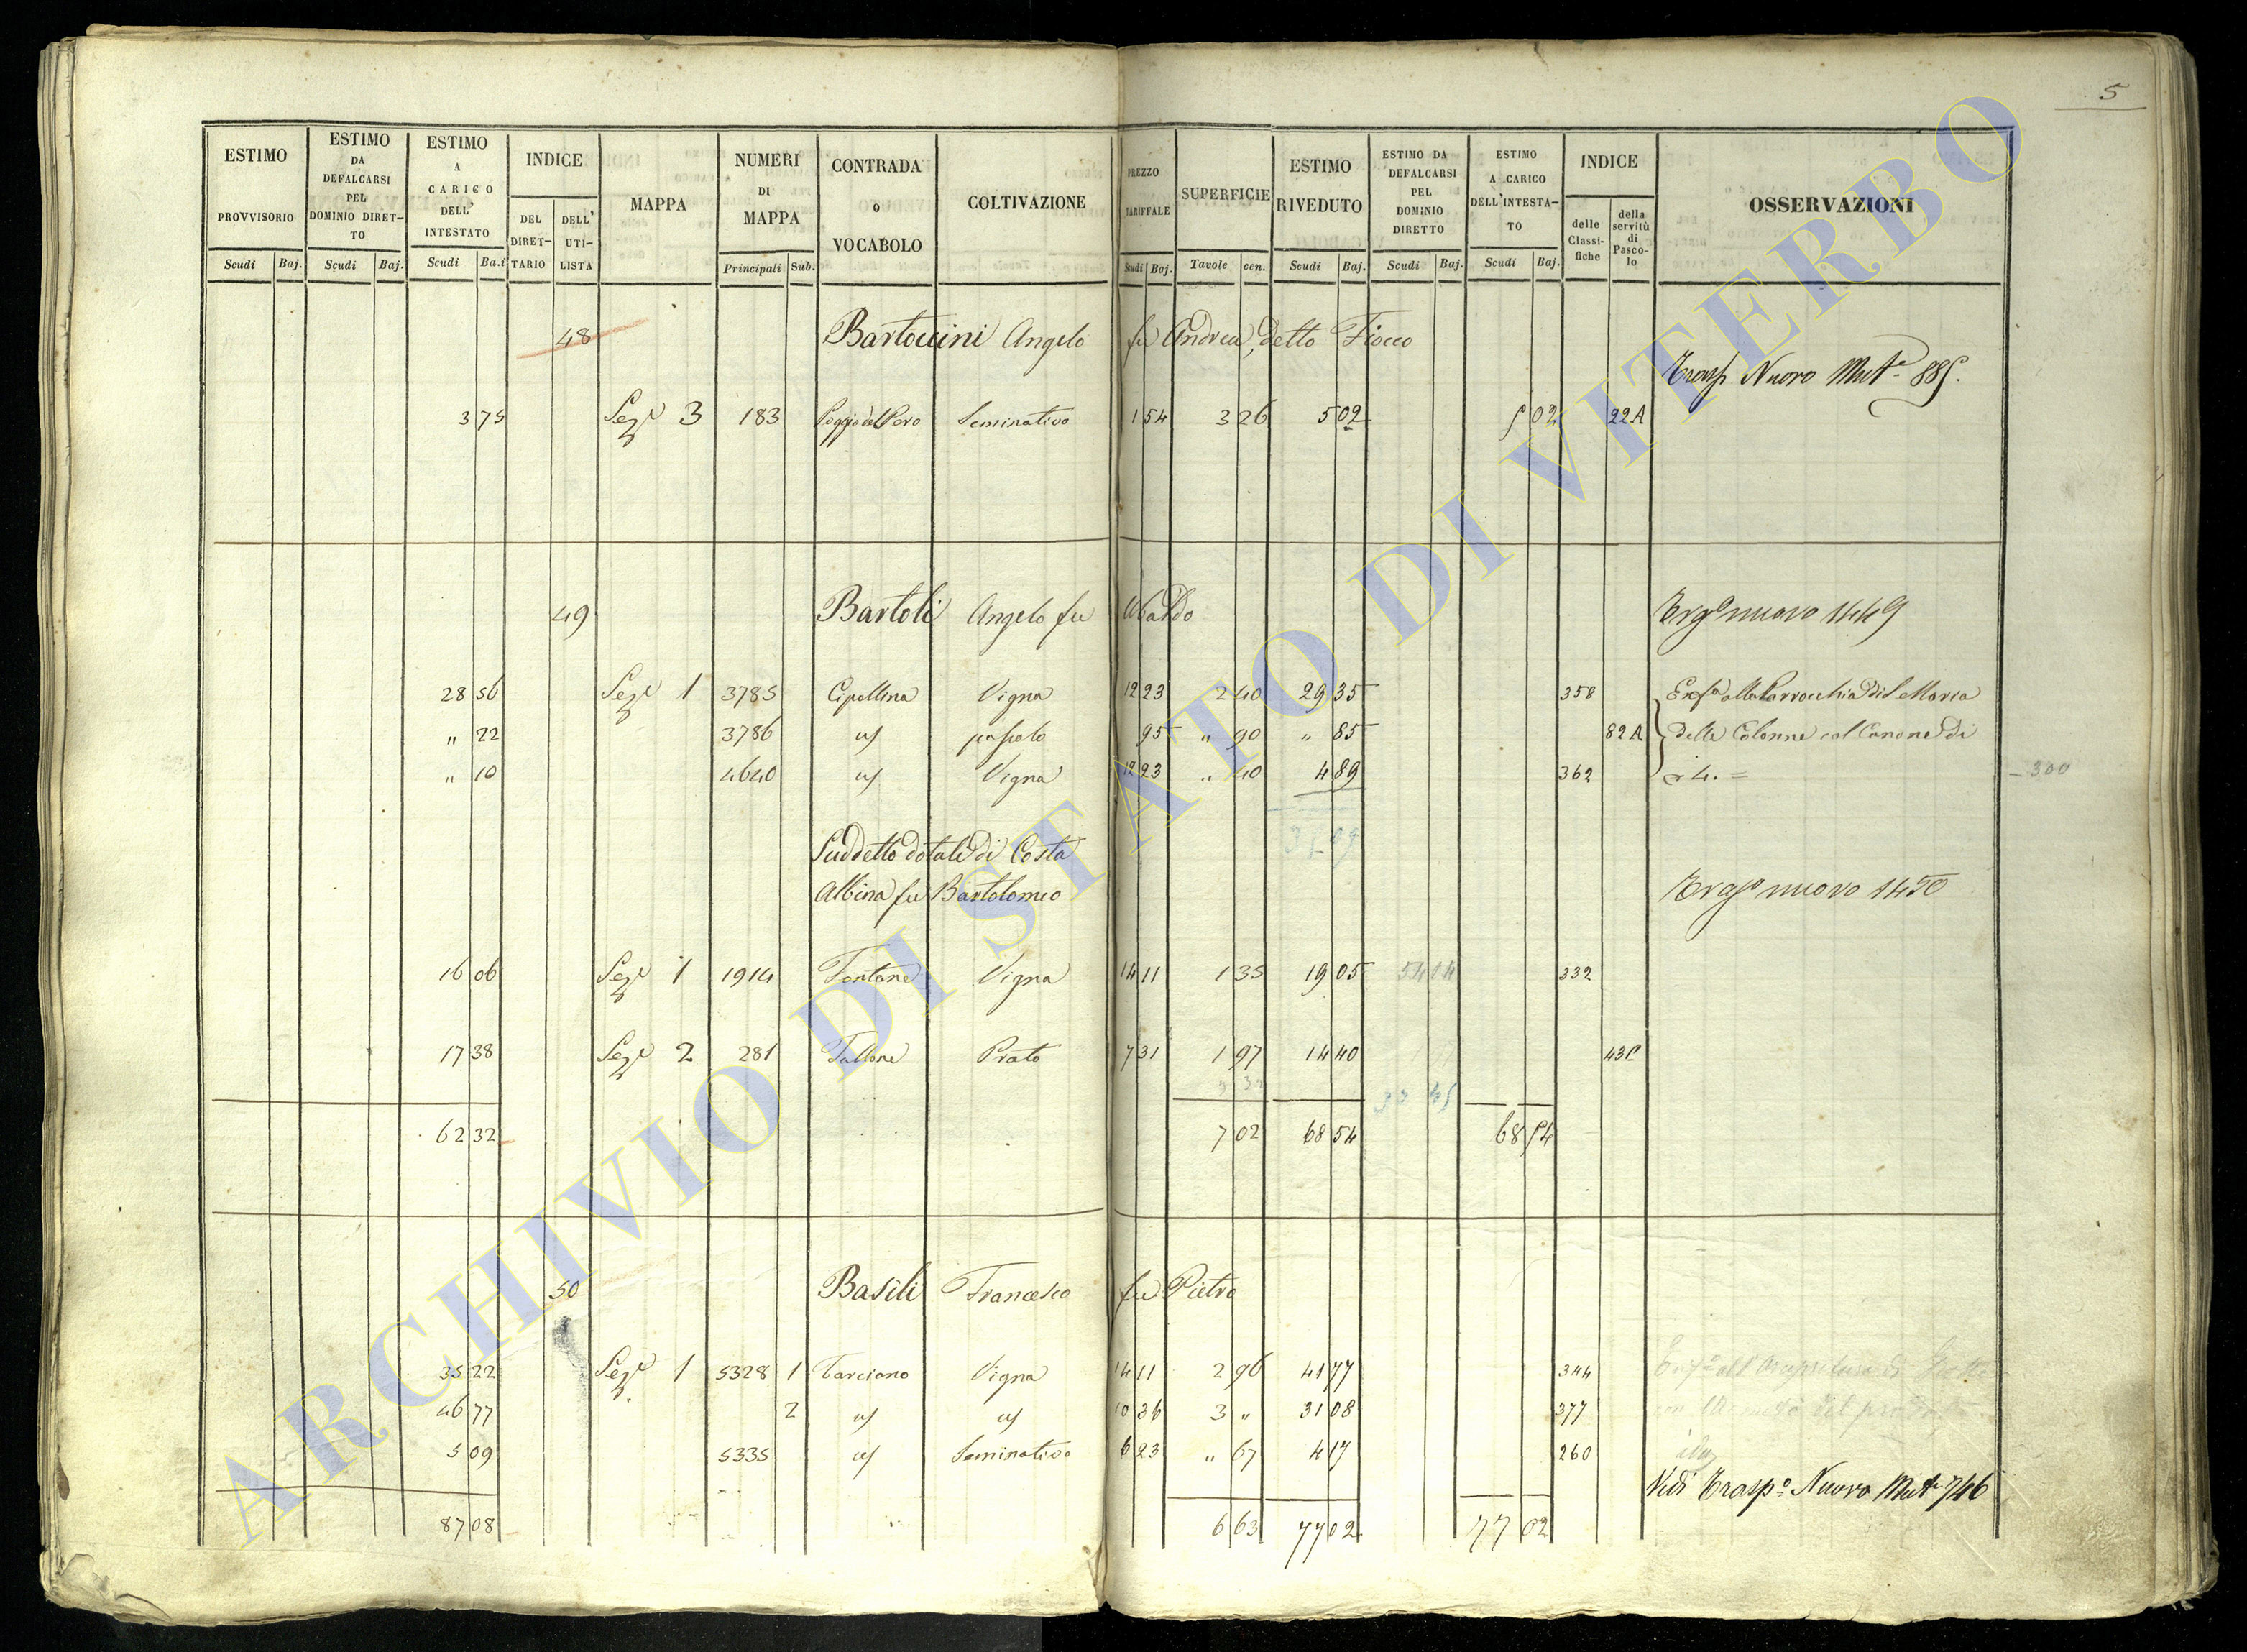 5
ESTIMO PROVVISORIO
ESTIMO DA DEFALCARSI PEL DOMINIO DIRETTO
ESTIMO A CARICO DELL' INTESTATO
INDICE
DEL DIRETTARIO
DELL' UTILISTA
MAPPA
NUMERI DI MAPPA
CONTRADA o VOCABOLO
COLTIVAZIONE
PREZZO TARIFFALE
SUPERFICIE
ESTIMO RIVEDUTO
ESTIMO DA DEFALCARSI PEL DOMINIO DIRETTO
ESTIMO A CARICO DELL'INTESTATO
INDICE
delle Classifiche
della servitù di Pascolo
OSSERVAZIONI
Scudi Baj. Scudi Baj. Scudi Ba.i Principali Sub. Scudi Baj. Tavole cen. Scudi Baj. Scudi Baj. Scudi Baj.
48 Bartoccini Angelo fu Andrea, detto Fiocco
Trasp. Nuovo Mut.e 885.
3 75 Sez.e 3 183 Seminativo 1 54 3 26 5 02 5 02 22A
49 Bartoli Angelo fu Ubaldo nuovo 1449
28 56 Sez.e 1 3785 Cipollina Vigna 12 23 2 40 29 35 358 alla Parrocchia di S. Maria
" 22 3786 pascolo 95 " 90 " 85 82A delle Colonne col Canone di
" 10 4640 Vigna 12 23 " 40 4 89 362 4. = 300
35 09
Suddetto dotali di Costa
Albina fu Bartolomeo nuovo 1450
16 06 Sez.e 1 1914 Fontane Vigna 14 11 1 35 19 05 54 14 332
17 38 Sez.e 2 281 Prato 7 31 1 97 14 40 43C
33 45
62 32 7 02 68 54 68 54
50 Basili Francesco fu Pietro
35 22 Sez.e 1 5328 1 Tarciano Vigna 14 11 2 96 41 77 344
46 77 2 10 36 3 " 31 08 377
5 09 5335 Seminativo 6 23 " 67 4 17 260
Vedi Trasp.o Nuovo Mut.e 746
87 08 6 63 77 02 77 02
ARCHIVIO DI STATO DI VITERBO